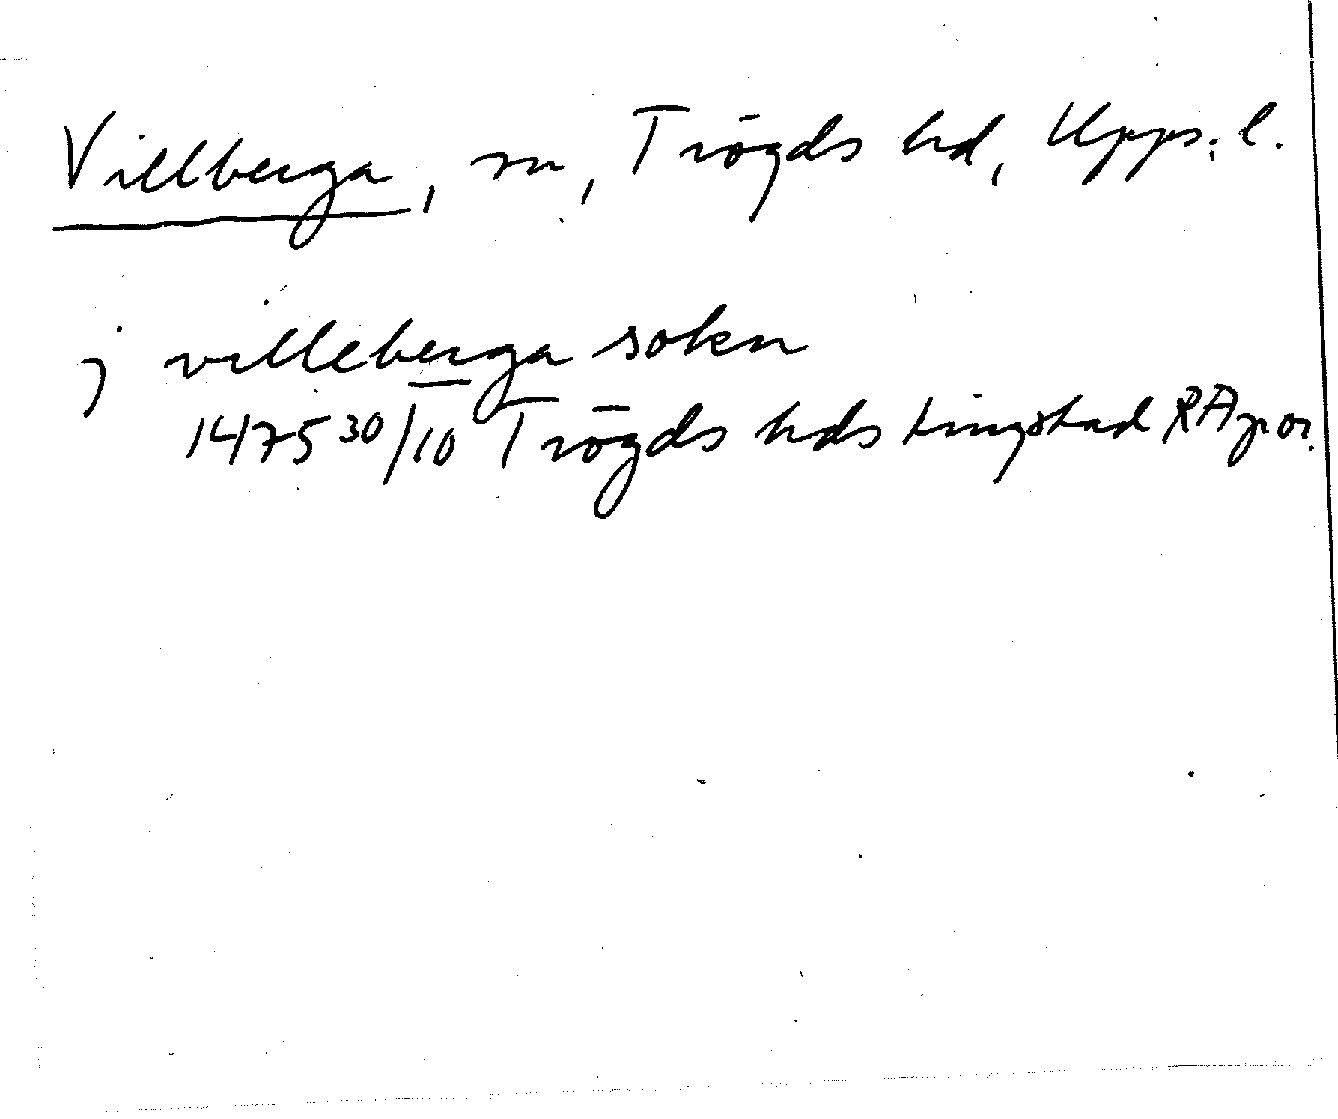 Villberga, sn, Trögds hd, Upps. l.
j villeberga sokn
1475 30/10 Trögds hds tingstad RAp or.